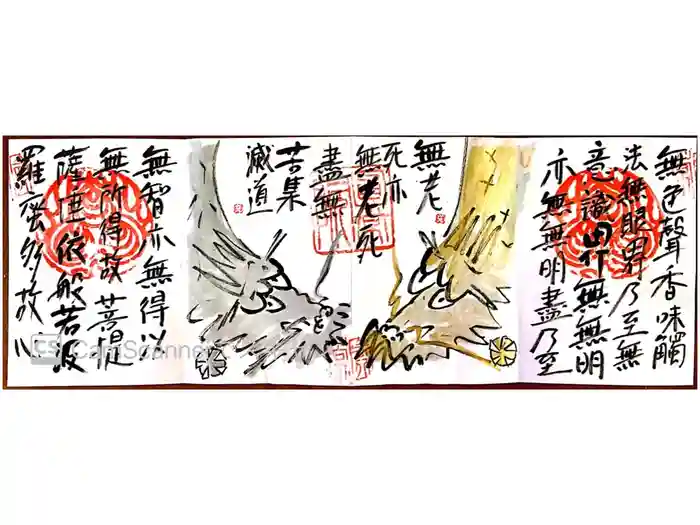 無色聲香味觸
法無眼界乃至無
意識界無無明
亦無無明盡乃至
無老
死亦
無老死
盡無
苦集
滅道
無智亦無得以
無所得故菩提
薩埵依般若波
羅蜜多故心
CS CamScanner